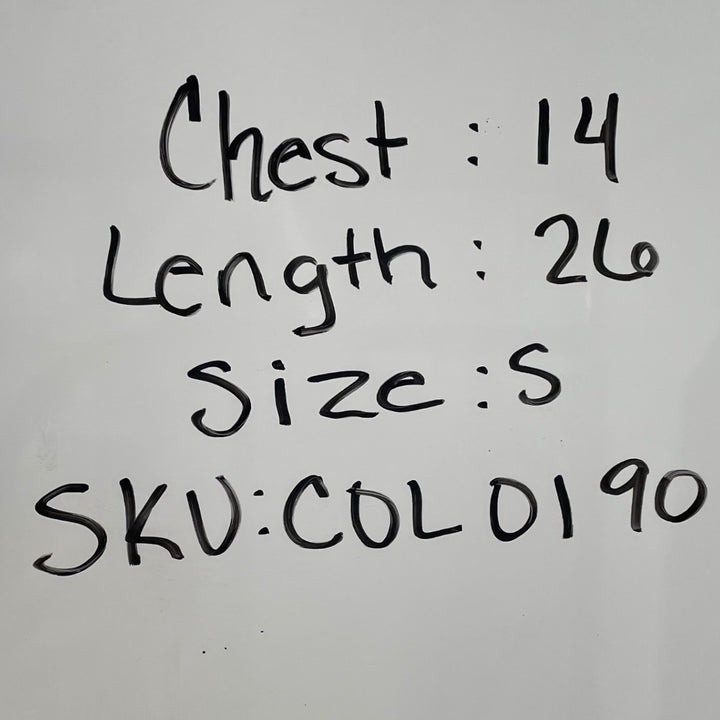 Chest : 14
Length : 26
Size : S
SKU: COL0190